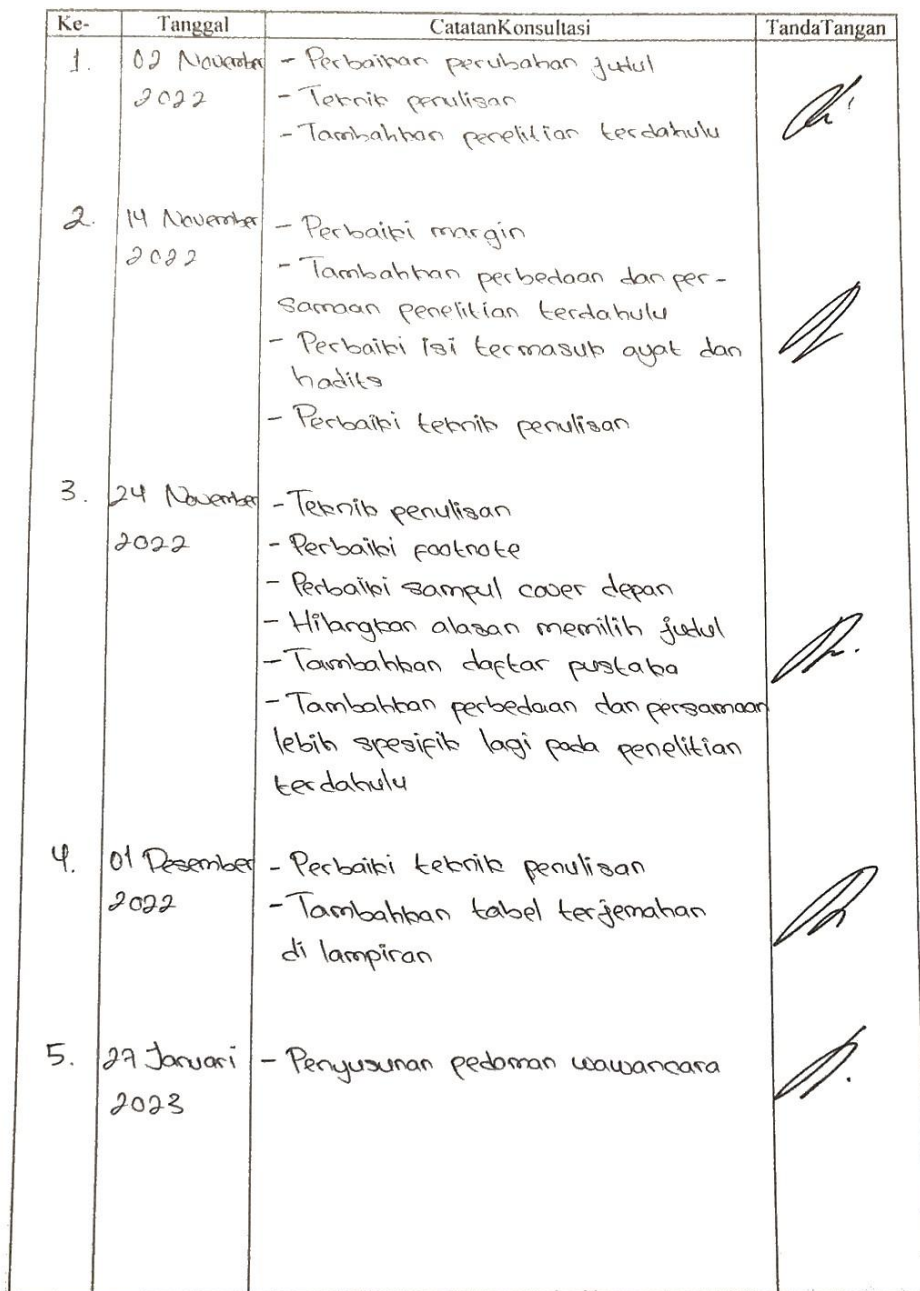 Ke- Tanggal CatatanKonsultasi TandaTangan
1. 02 November - Perbaikan perubahan judul
2022 - Teknik penulisan
- Tambahkan penelitian terdahulu
2. 14 November - Perbaiki margin
2022
- Tambahkan perbedaan dan per-
samaan penelitian terdahulu
- Perbaiki isi termasuk ayat dan
hadits
- Perbaiki teknik penulisan
3. 24 November - Teknik penulisan
2022 - Perbaiki footnote
- Perbaiki sampul cover depan
- Hilangkan alasan memilih judul
- Tambahkan daftar pustaka
- Tambahkan perbedaan dan persamaan
lebih spesifik lagi pada penelitian
terdahulu
4. 01 Desember - Perbaiki teknik penulisan
2022 - Tambahkan tabel terjemahan
di lampiran
5. 27 Januari - Penyusunan pedoman wawancara
2023